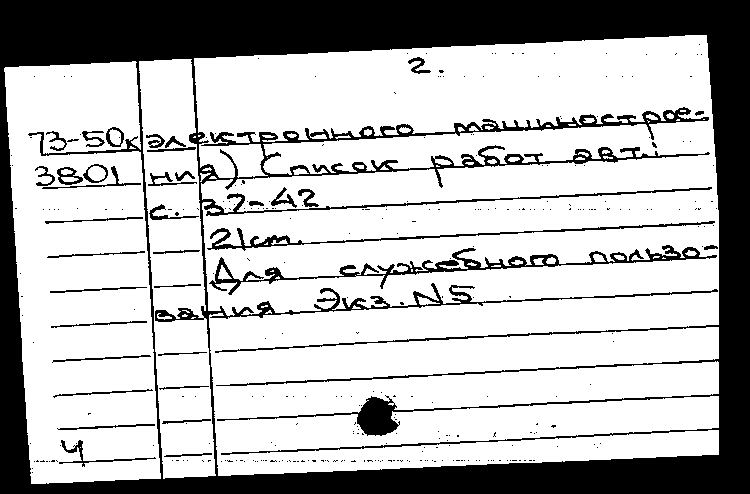 2.
73-50к электронного машинострое-
3801 ния). Список работ авт.:
с. 37-42.
21 см.
Для служебного пользо-
вания. Экз. N5
Ч